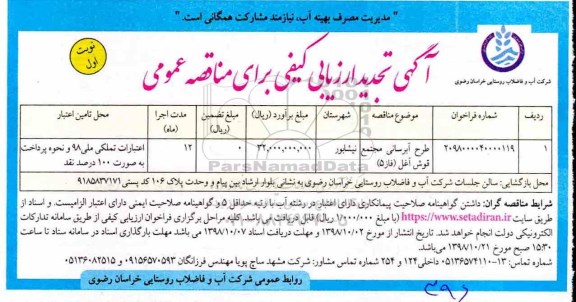 " مدیریت مصرف بهینه آب، نیازمند مشارکت همگانی است. "
نوبت اول
آگهی تجدید ارزیابی کیفی برای مناقصه عمومی
شرکت آب و فاضلاب روستایی خراسان رضوی
ردیف شماره فراخوان موضوع مناقصه شهرستان مبلغ برآورد (ریال) مبلغ تضمین (ریال) مدت اجرا (ماه) محل تامین اعتبار
۱ ۲۰۹۸۰۰۰۴۰۰۰۰۱۱۹ طرح آبرسانی مجتمع قوش آغل (فاز۵) نیشابور ۳۲,۰۰۰,۰۰۰,۰۰۰ ۰ ۱۲ اعتبارات تملکی ملی۹۸ و نحوه پرداخت به صورت ۱۰۰ درصد نقد
محل بازگشایی: سالن جلسات شرکت آب و فاضلاب روستایی خراسان رضوی به نشانی بلوار ارشاد بین پیام و وحدت پلاک ۱۰۶ کد پستی ۹۱۸۵۸۳۷۱۷۱
شرایط مناقصه گران: داشتن گواهینامه صلاحیت پیمانکاری دارای اعتبار در رشته آب با رتبه حداقل ۵ و گواهینامه صلاحیت ایمنی دارای اعتبار الزامیست. و اسناد از
طریق سایت https://www.setadiran.ir با مبلغ ۱/۰۰۰/۰۰۰ ریال) قابل دریافت می باشد. کلیه مراحل برگزاری فراخوان ارزیابی کیفی از طریق سامانه تدارکات
الکترونیکی دولت انجام خواهد شد. تاریخ انتشار از مورخ ۱۳۹۸/۱۰/۰۲ و مهلت دریافت اسناد ۱۳۹۸/۱۰/۰۷ می باشد مهلت بارگذاری اسناد در سامانه ستاد تا ساعت
۱۵:۳۰ صبح مورخ ۱۳۹۸/۱۰/۲۱ می‌باشد.
شماره تماس: ۱۳-۰۵۱۳۶۵۷۴۱۱۰ داخلی۱۲۴ و ۲۵۴ شماره تماس مشاور: شرکت مشهد ساج پویا مهندس فرزانگان ۰۹۱۵۶۵۷۰۵۹۳ و ۰۵۱۳۶۰۸۲۵۱۵
روابط عمومی شرکت آب و فاضلاب روستایی خراسان رضوی
ParsNamadData